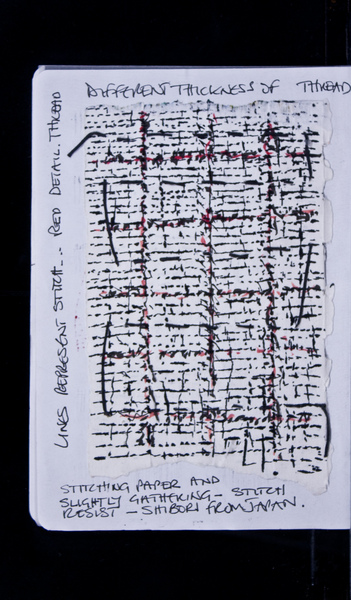 DIFFERENT THICKNESS OF THREAD
LINES REPRESENT STITCH... RED DETAIL. THREAD
STITCHING PAPER AND
SLIGHTLY GATHERING - STITCH
RESIST - SHIBORI FROM JAPAN.